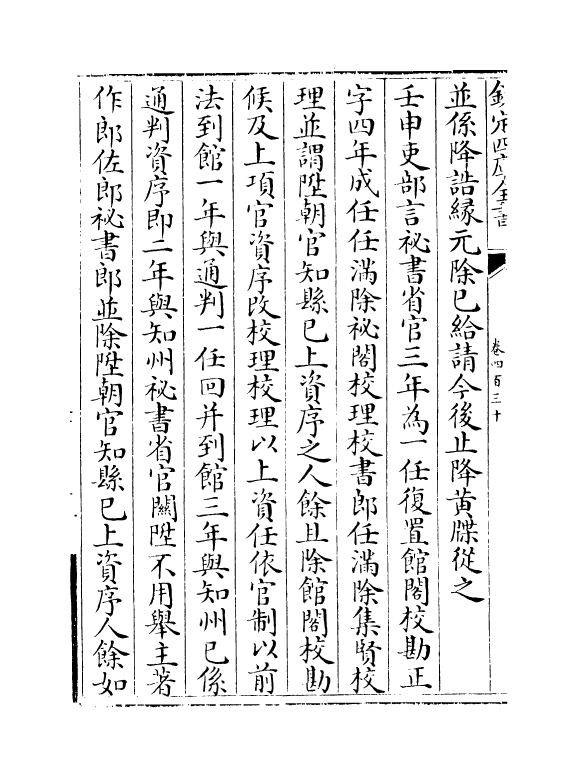 欽定四庫全書
卷四百三十
並係降誥緣元除已給請今後止降黄牒從之
壬申吏部言祕書省官三年為一任復置館閣校勘正
字四年成任任滿除祕閣校理校書郎任滿除集賢校
理並謂陞朝官知縣已上資序之人餘且除館閣校勘
候及上項官資序改校理校理以上資任依官制以前
法到館一年與通判一任回并到館三年與知州已係
通判資序即二年與知州祕書省官關陞不用舉主著
作郎佐郎祕書郎並除陞朝官知縣已上資序人餘如